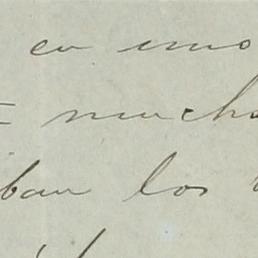 en uno
mucho
ban los